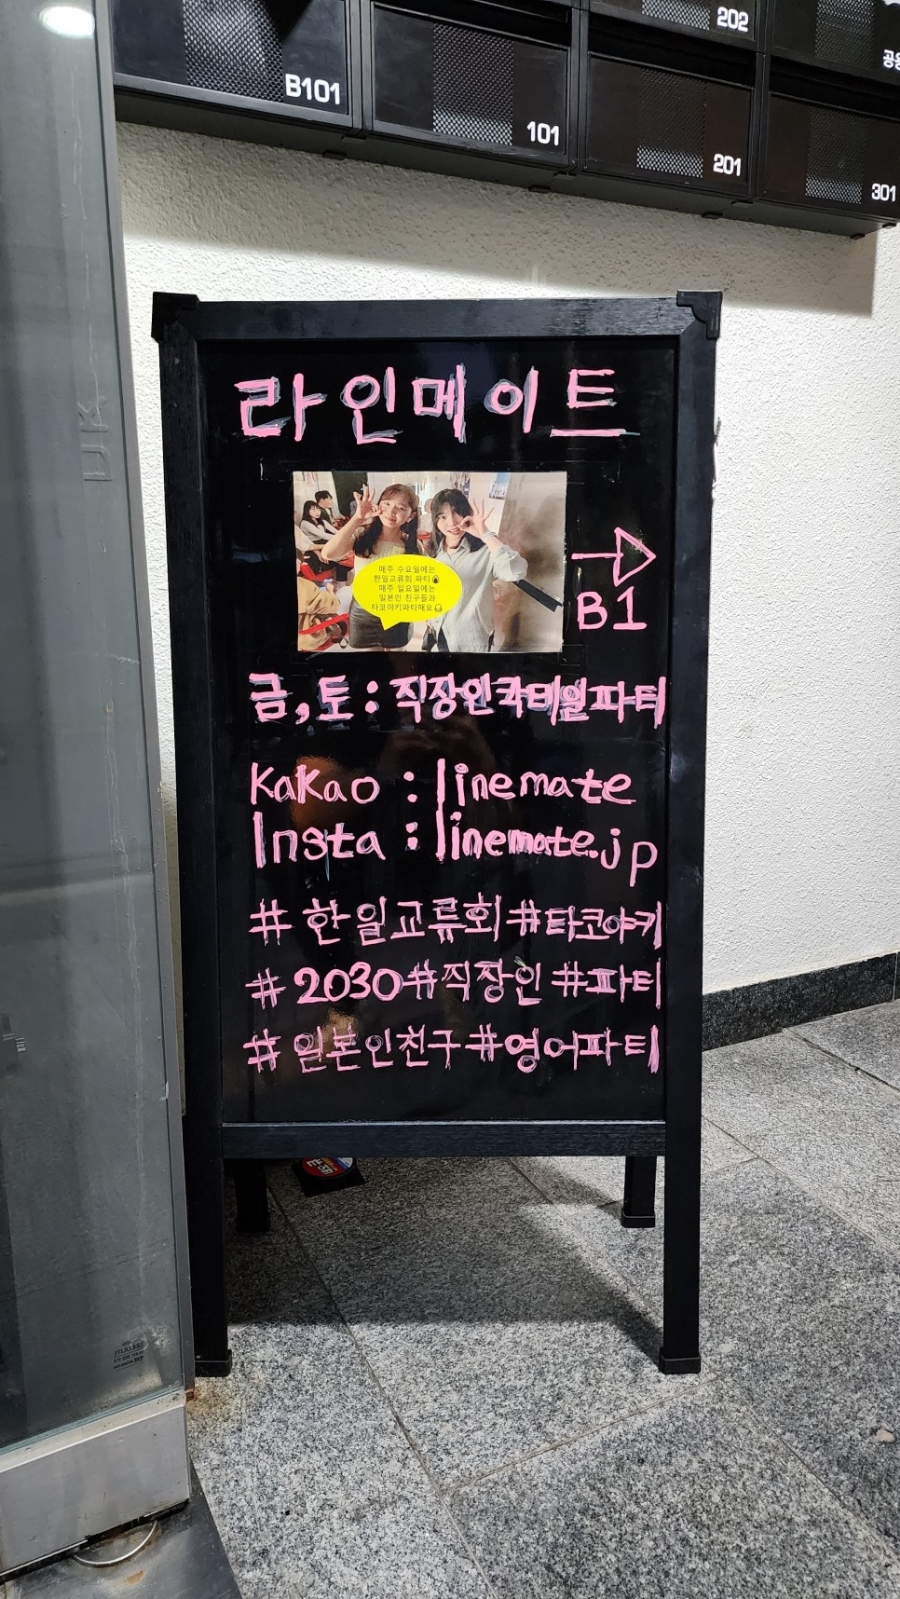 202
공용
B101
101
201
301
라인메이트
매주 수요일에는
한일교류회 파티
매주 일요일에는
일본인 친구들과
타코야키파티해요
B1
금,토:직장인칵테일파티
KaKao : linemate
Insta : linemate.jp
#한일교류회#타코야키
#2030#직장인#파티
#일본인친구#영어파티